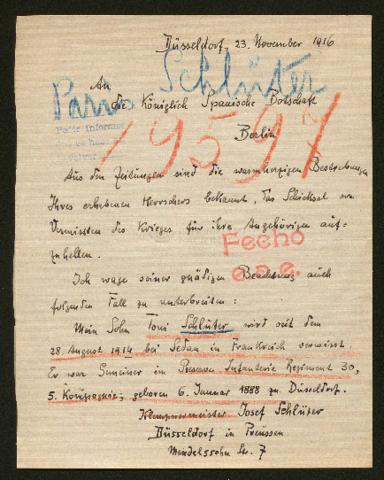 Düsseldorf, 23. November 1916
Paris Schlüter
An
die Königlich Spanische Botschaft
Berlin
19591
Aus den Zeitungen sind die warmherzigen Bestrebungen
Ihres erhabenen Herrschers bekannt, das Schicksal von
Vermissten des Krieges für ihre Angehörigen auf-
zuhellen.
Fecho
Ich wage seiner gnädigen Beachtung auch
folgenden Fall zu unterbreiten:
Mein Sohn Toni Schlüter wird seit dem
28. August 1914 bei Sedan in Frankreich vermisst.
Er war Gemeiner im Reserve Infanterie Regiment 30,
5. Kompagnie; geboren 6. Januar 1888 zu Düsseldorf.
Klempnermeister Josef Schlüter
Düsseldorf in Preussen
Mendelssohn Str. 7